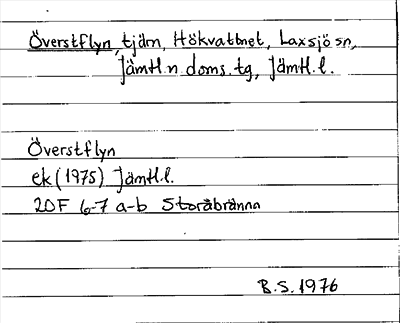 Överstflyn, tjärn, Hökvattnet, Laxsjö sn,
Jämtl.n doms.tg, Jämtl.l.
Överstflyn
ek (1975) Jämtl.l.
20F 6-7 a-b Storåbränna
B.S. 1976